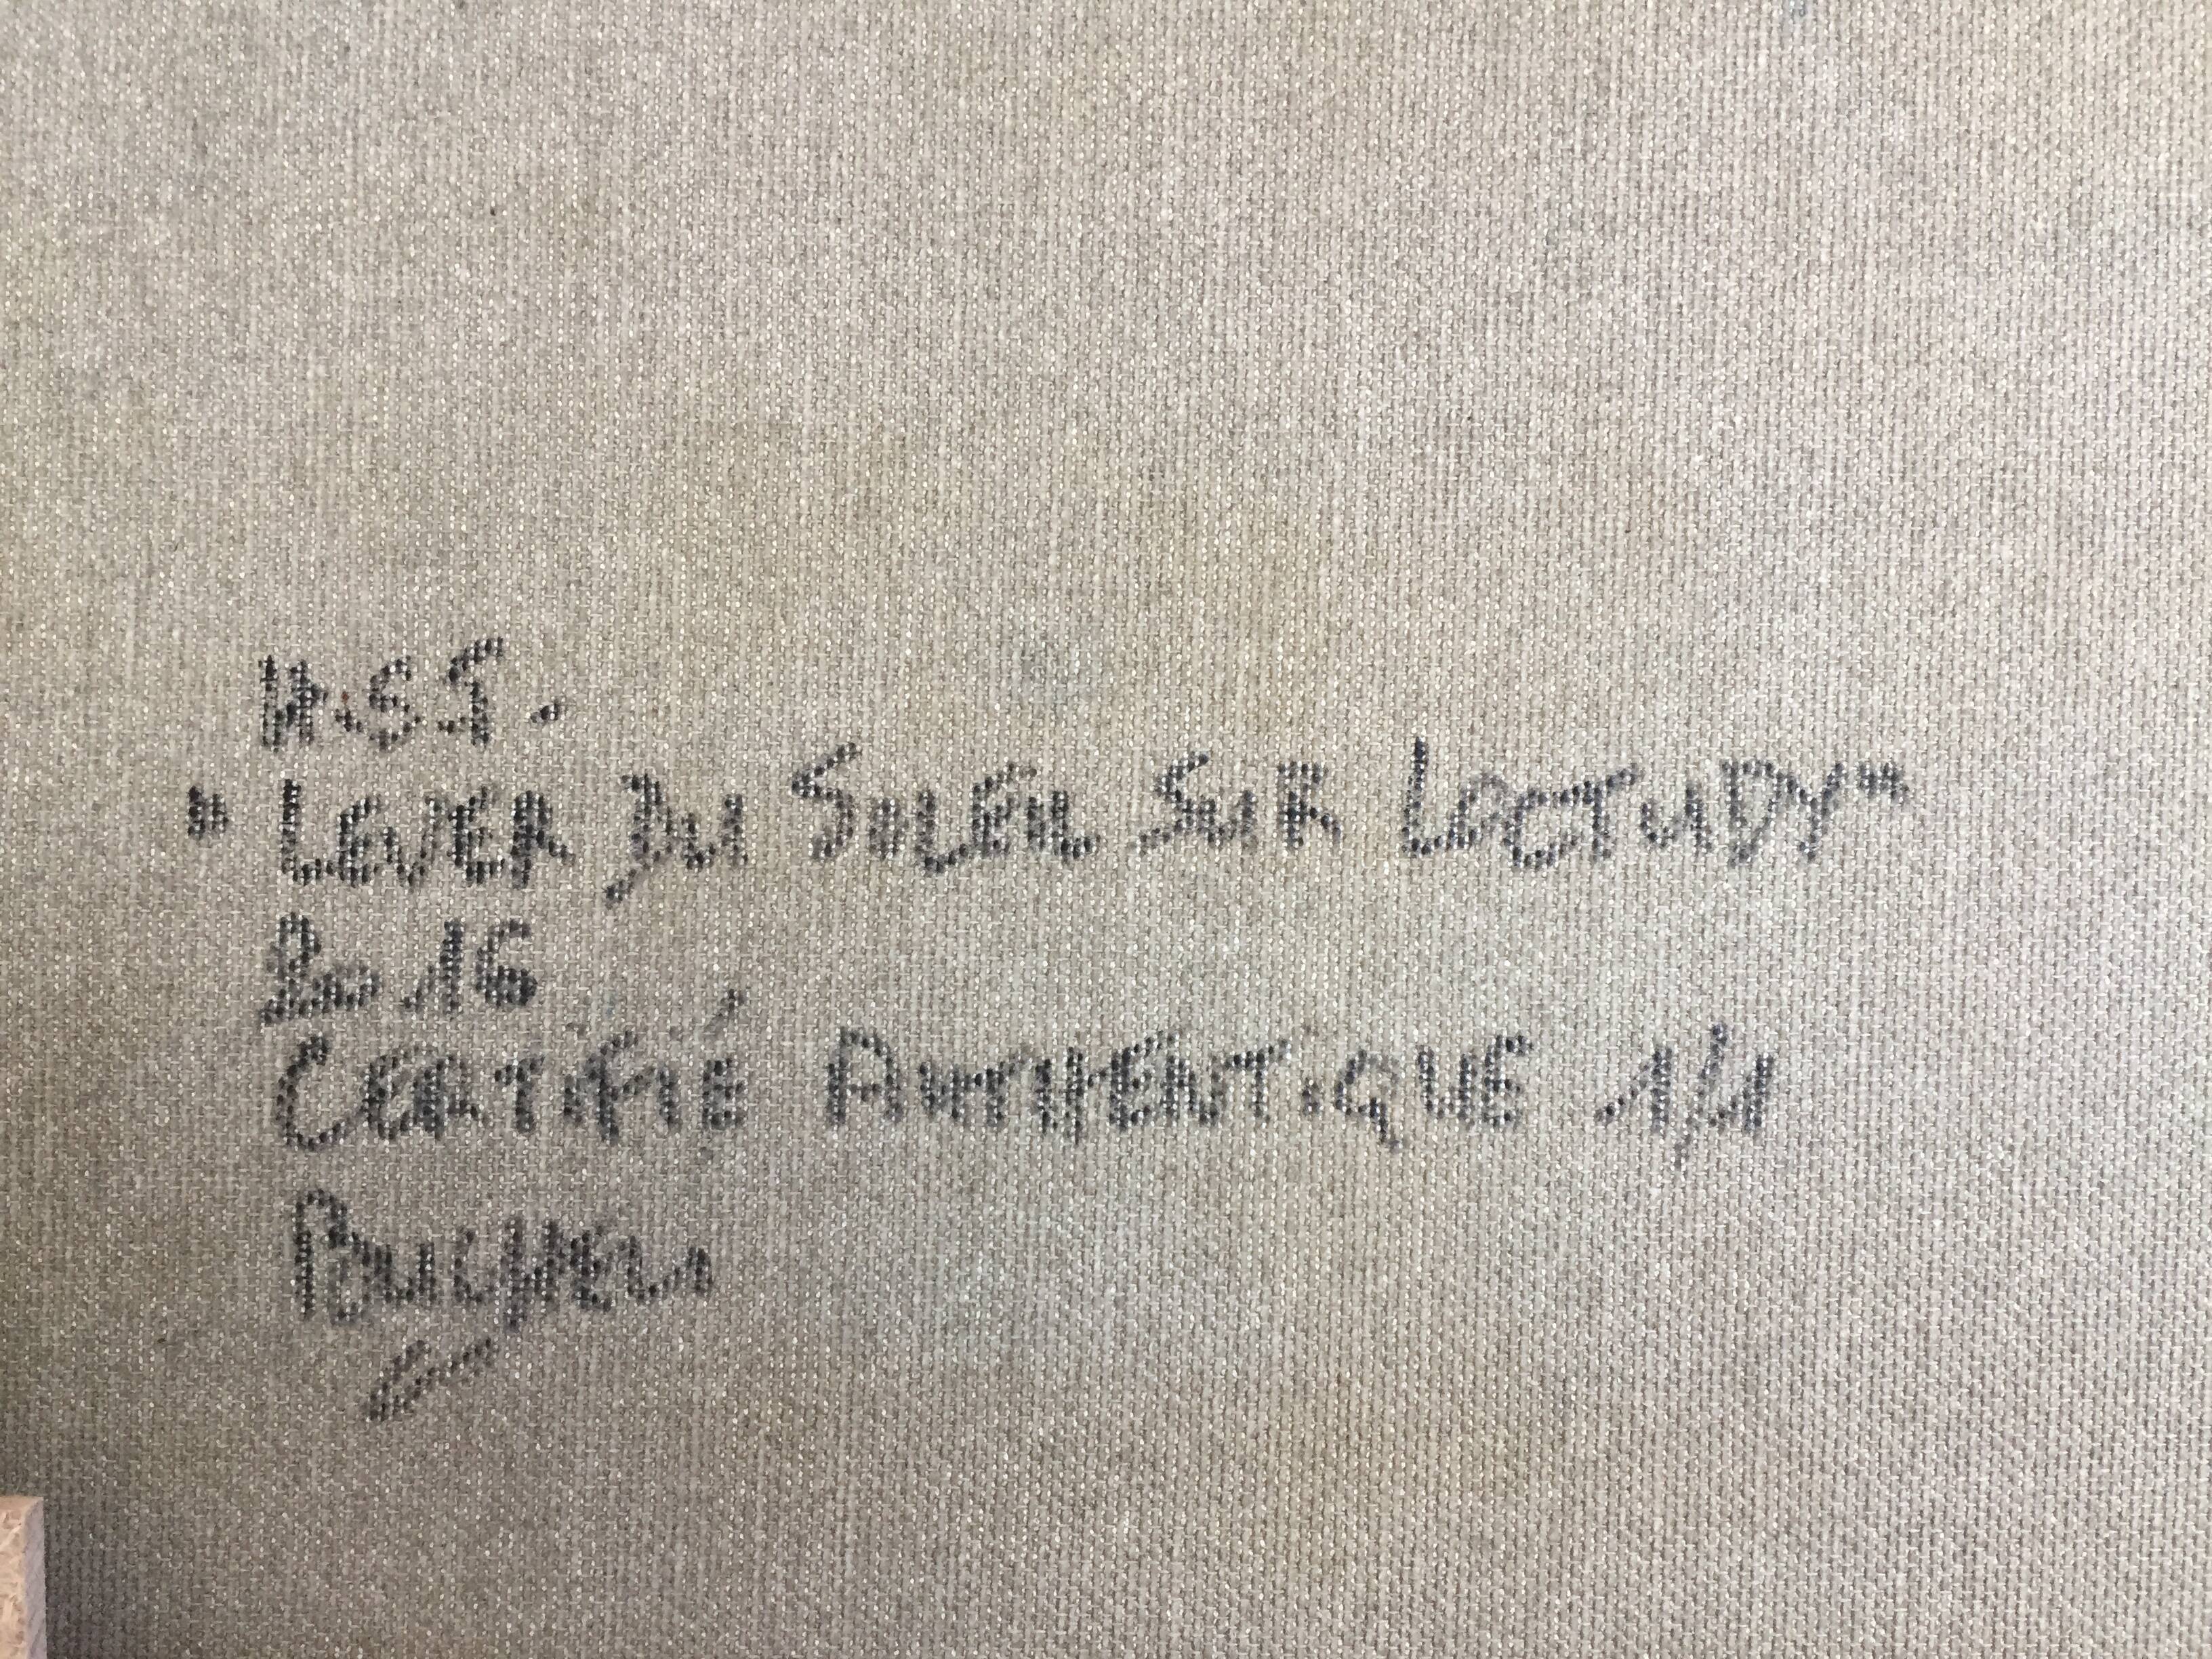 H.S.T.
"LEVER DU SOLEIL SUR LOCTUDY"
2016
CERTIFIÉ AUTHENTIQUE 1/1